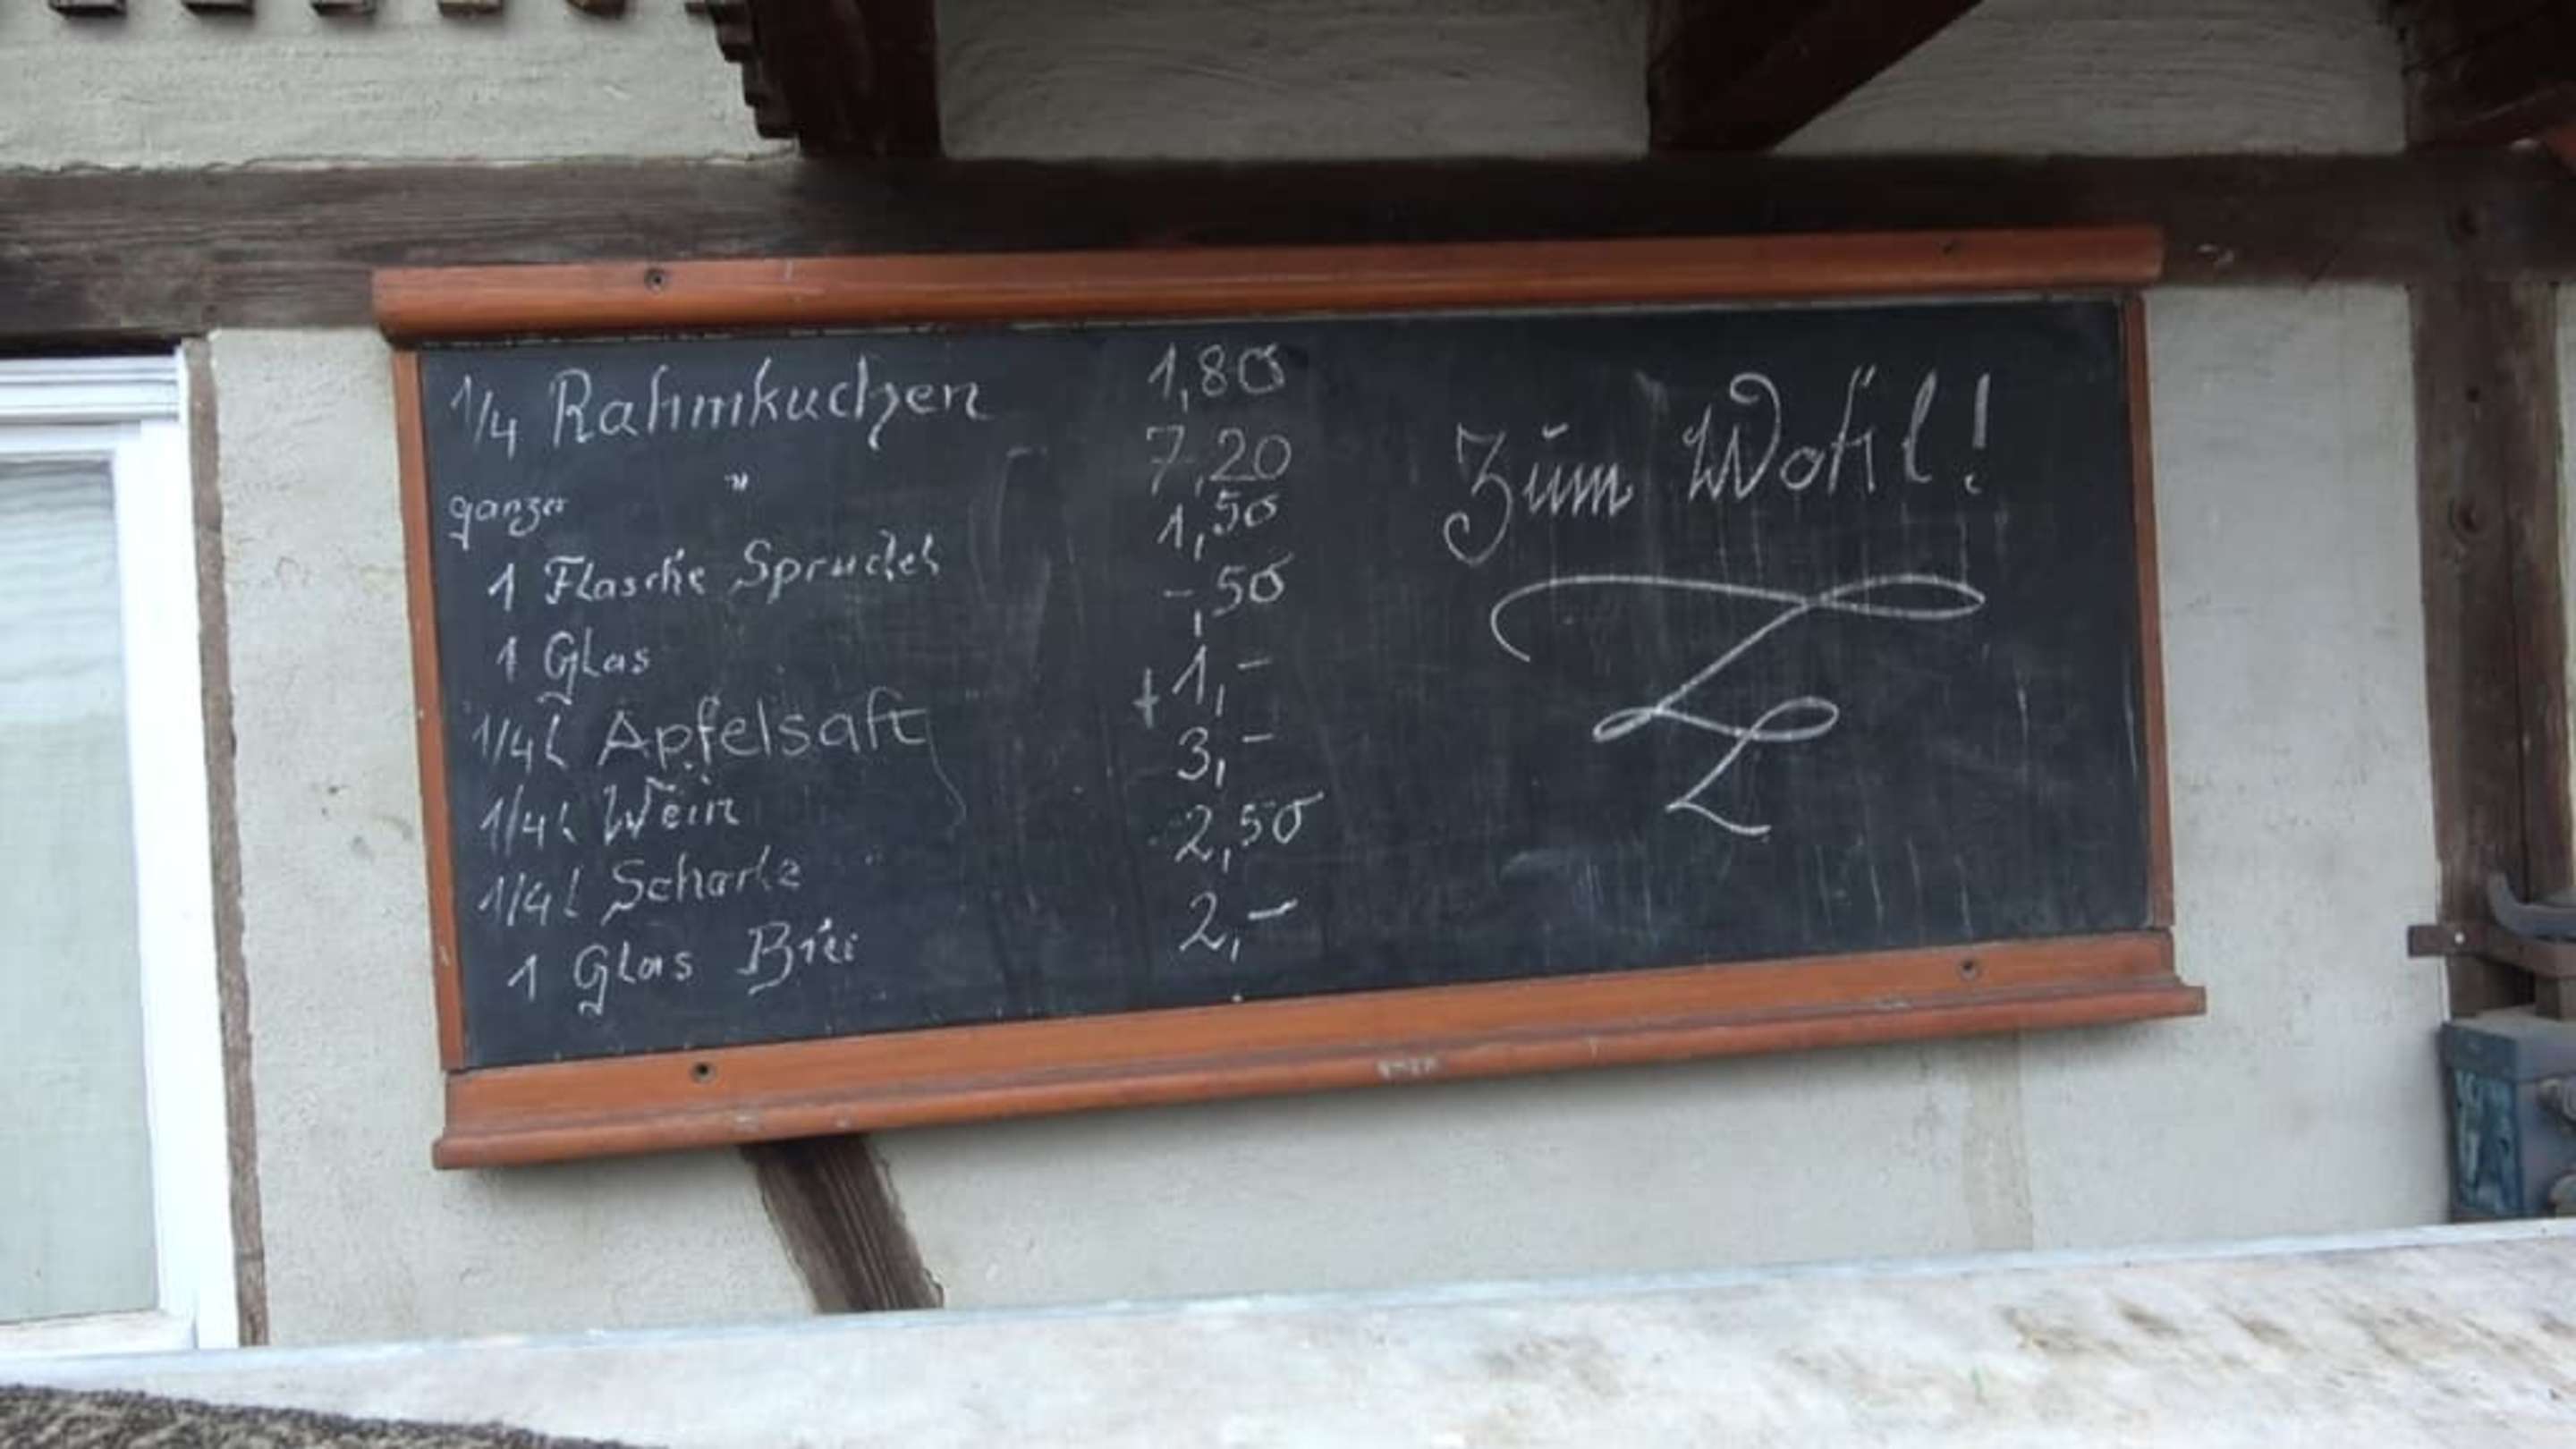 1/4 Rahmkuchen 1,80
ganzer " 7,20
1 Flasche Sprudel 1,50
1 Glas -,50
1/4 l Apfelsaft + 1,-
1/4 l Wein 3,-
1/4 l Schorle 2,50
1 Glas Bier 2,-
Zum Wohl!